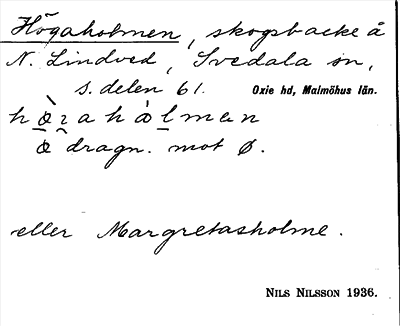 Högaholmen, skogsbacke å
N. Lindved, Svedala sn,
s. delen 61. Oxie hd, Malmöhus län.
hæ̀ɀahålmen
æ dragn. mot ø.
eller Margretasholme.
NILS NILSSON 1936.